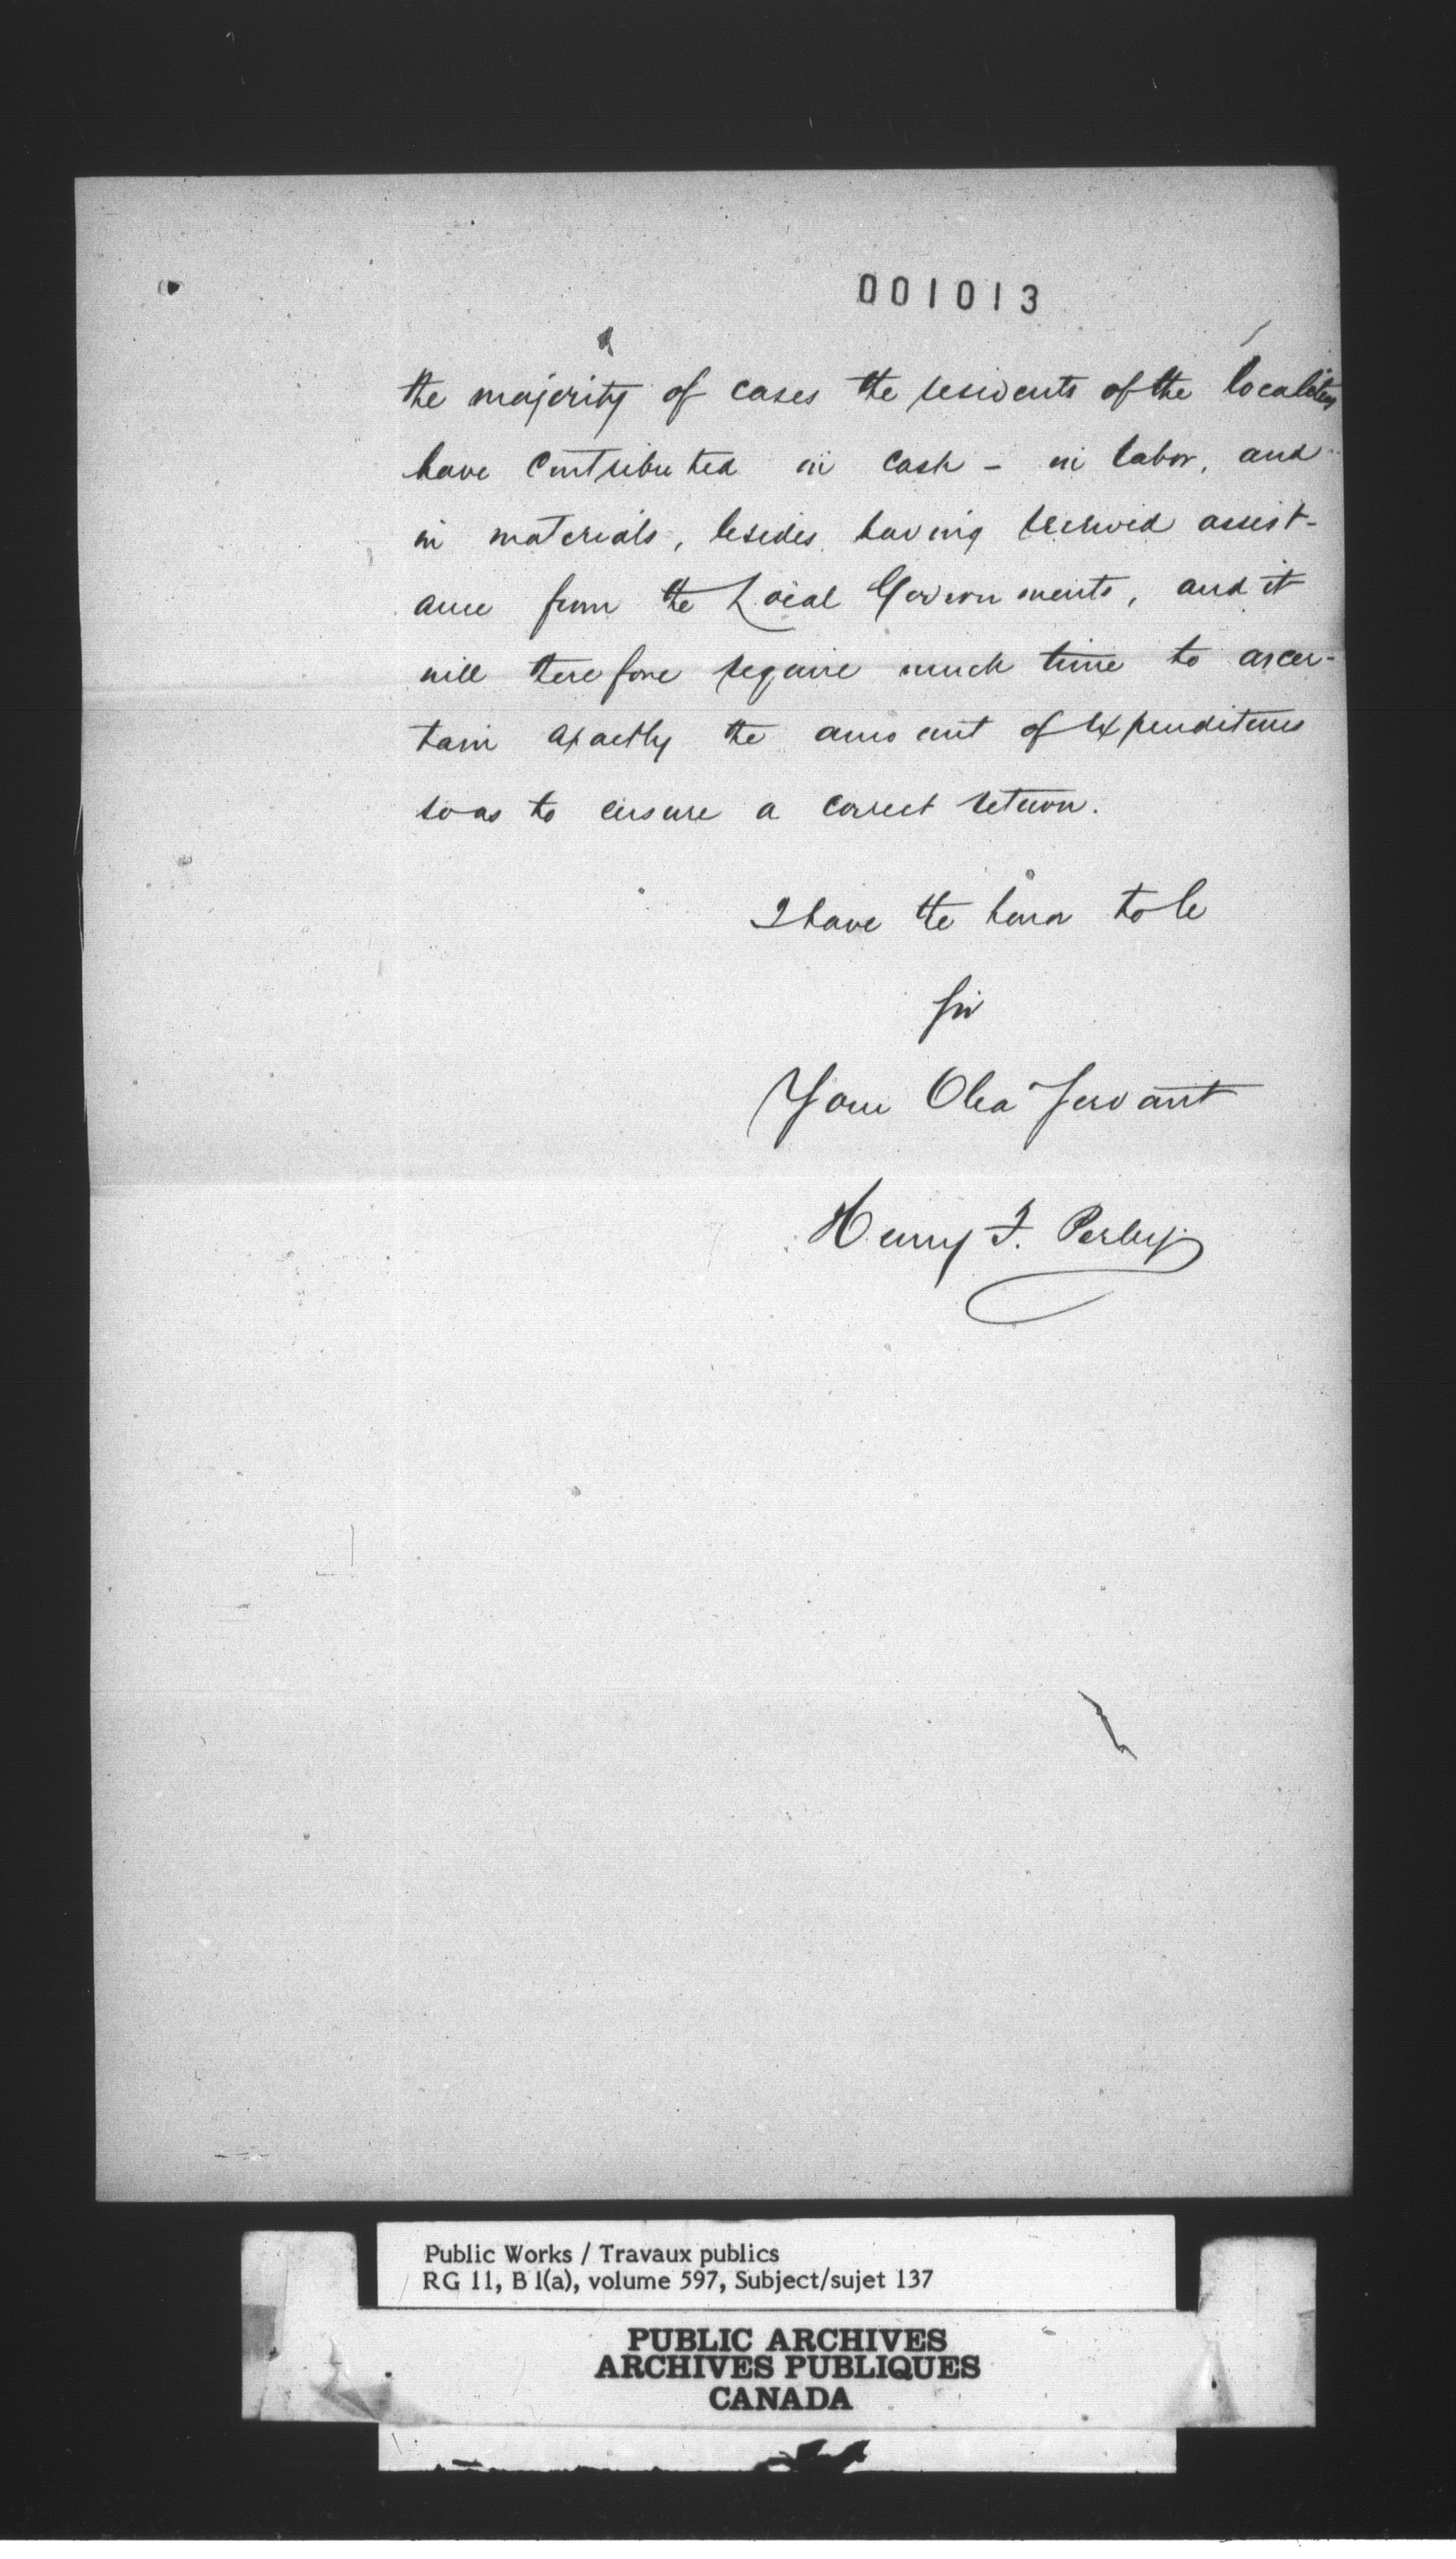 001013
the majority of cases the residents of the localities
have contributed in cash - in labor, and
in materials, besides having received assist-
ance from the Local Governments, and it
will therefore require much time to ascer-
tain exactly the amount of expenditures
so as to ensure a correct return.
I have the honor to be
Sir
Your Obdt Servant
Henry F. Perley
Public Works / Travaux publics
RG 11, B 1(a), volume 597, Subject/sujet 137
PUBLIC ARCHIVES
ARCHIVES PUBLIQUES
CANADA